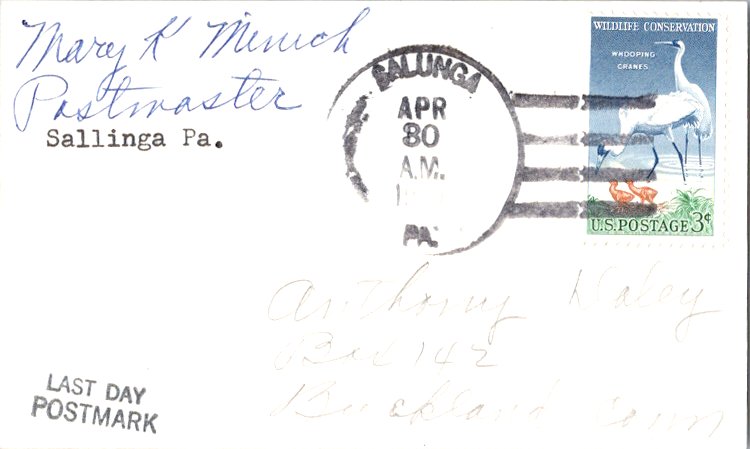 Mary K Minich
Postmaster
Sallinga Pa.
SALUNGA
APR
30
A.M.
PA.
WILDLIFE CONSERVATION
WHOOPING
CRANES
U.S. POSTAGE 3¢
Anthony
Box 142
Buckland Conn
LAST DAY
POSTMARK